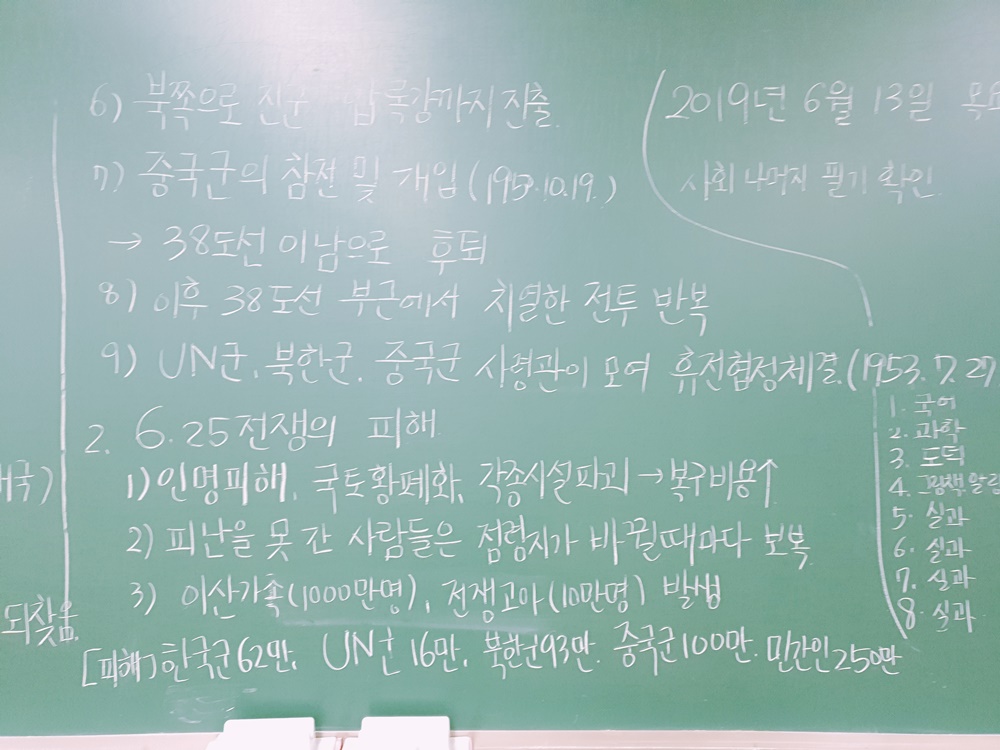 6) 북쪽으로 진군 압록강까지 진출
7) 중국군의 참전 및 개입 (1950.10.19.)
→ 38도선 이남으로 후퇴
8) 이후 38도선 부근에서 치열한 전투 반복
9) UN군, 북한군, 중국군 사령관이 모여 휴전협정체결 (1953.7.27
2. 6.25전쟁의 피해
1) 인명피해, 국토황폐화, 각종시설파괴 → 복구비용↑
2) 피난을 못 간 사람들은 점령지가 바뀔때마다 보복
3) 이산가족(1000만명), 전쟁고아(10만명) 발생
[피해] 한국군 62만, UN군 16만, 북한군 93만. 중국군 100만. 민간인 250만
되찾음.
2019년 6월 13일 목요
사회 나머지 필기 확인
1. 국어
2. 과학
3. 도덕
4. 그림책
5. 실과
6. 실과
7. 실과
8. 실과